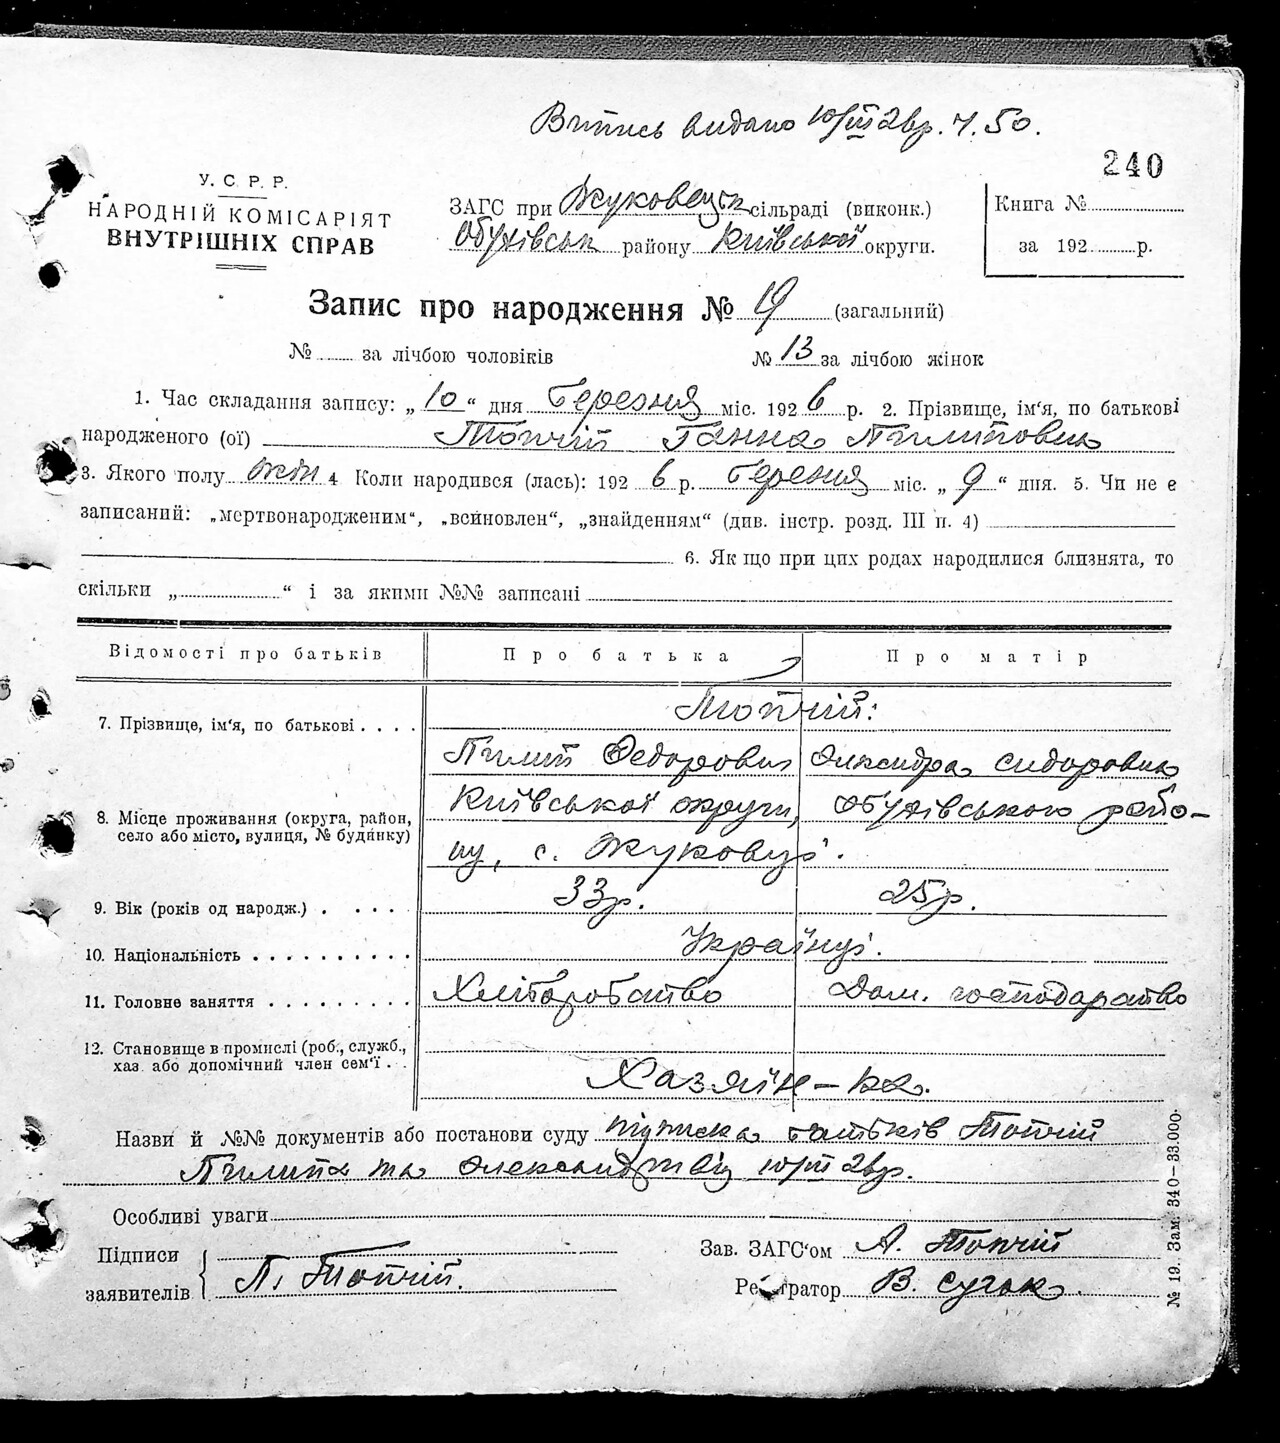 Витись видано 10/III 26р. ч. 50.
240
У. С. Р. Р.
НАРОДНІЙ КОМІСАРІЯТ
ВНУТРІШНІХ СПРАВ
ЗАГС при Жуковецьк сільраді (виконк.)
Обухівськ району Київської округи.
Книга №
за 192 р.
Запис про народження № 19 (загальний)
№ за лічбою чоловіків № 13 за лічбою жінок
1. Час складання запису: „10“ дня березня міс. 1926 р. 2. Прізвище, ім'я, по батькові
народженого (ої) Топчій Ганна Пилиповна
3. Якого полу жін 4 Коли народився (лась): 1926 р. березня міс. „9“ дня. 5. Чи не є
записаний: „мертвонародженим“, „всиновлен“, „знайденням“ (див. інстр. розд. III п. 4)
6. Як що при цих родах народилися близнята, то
скільки „ “ і за якими №№ записані
Відомості про батьків Про батька Про матір
7. Прізвище, ім'я, по батькові . . . . Топчій:
Пилип Федорович Олександра Сидоровна
8. Місце проживання (округа, район,
село або місто, вулиця, № будинку)
Київської округи, Обухівського райо-
ну, с. Жуковці.
9. Вік (років од народж.) . . . . 33р. 25р.
10. Національність . . . . . . . . . . Українці.
11. Головне заняття . . . . . . . . . Хліборобство Дом. господарство
12. Становище в промислі (роб., служб.,
хаз. або допомічний член сем'ї . .
Хазяїн-ка.
Назви й №№ документів або постанови суду підписка батьків Топчій
Пилипа та Олександри від 10/III 26р.
Особливі уваги
Підписи
заявителів
П. Топчій.
Зав. ЗАГС'ом А. Топчій
Реєстратор В. Сугак.
№ 19. Зам. 340—33.000.